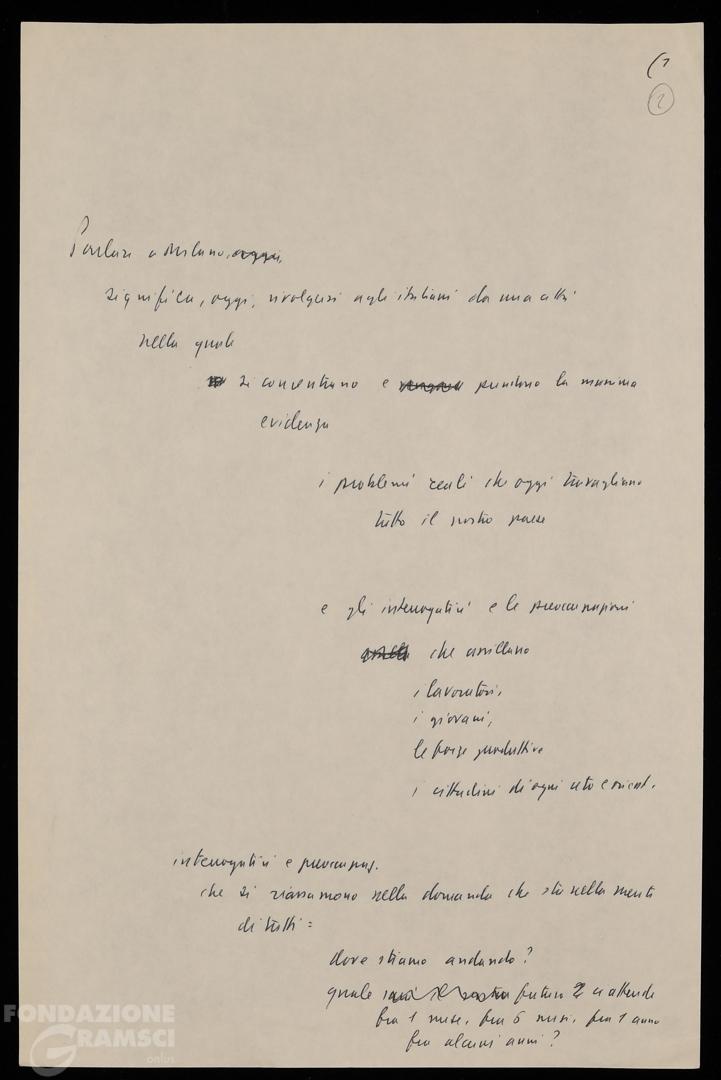 (1
2
Parlare a Milano, oggi,
significa, oggi, rivolgersi agli italiani da una città
nella quale
si concentrano e prendono la massima
evidenza
i problemi reali che oggi travagliano
tutto il nostro paese
e gli interrogativi e le preoccupazioni
che assillano
i lavoratori,
i giovani,
le forze produttive
i cittadini di ogni ceto e orient.
interrogativi e preoccupaz.
che si riassumono nella domanda che sta nella mente
di tutti:
dove stiamo andando?
quale sarà il nostro futuro ci attende
fra 1 mese, fra 6 mesi, fra 1 anno
fra alcuni anni?
FONDAZIONE
GRAMSCI
onlus